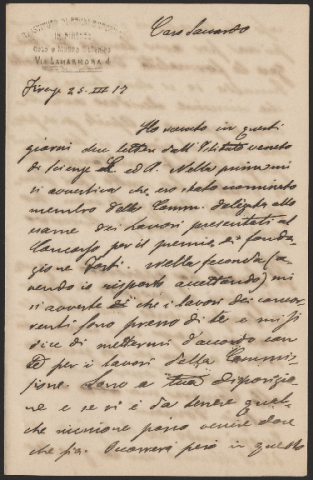 R. ISTITUTO DI STUDI SUPERIORI
IN FIRENZE
Orto e Museo Botanico
VIA LAMARMORA 4
Caro Saccardo
Firenze 25-III-17
Ho ricevuto in questi
giorni due lettere dall'Istituto veneto
di Scienze L. ed A. Nella prima mi
si avvertiva che ero stato nominato
membro della Comm. delegata allo
esame dei lavori presentati al
Concorso per il premio di fonda-
zione Forti. Nella seconda (a-
vendo io risposto accettando) mi
si avverte che i lavori dei concor-
renti sono presso di te e mi si
dice di mettermi d'accordo con
te per i lavori della Commis-
sione. Sono a tua disposizio-
ne e se vi è da tenere qual-
che riunione posso venire dove
che sia. Occorrerà però in questo